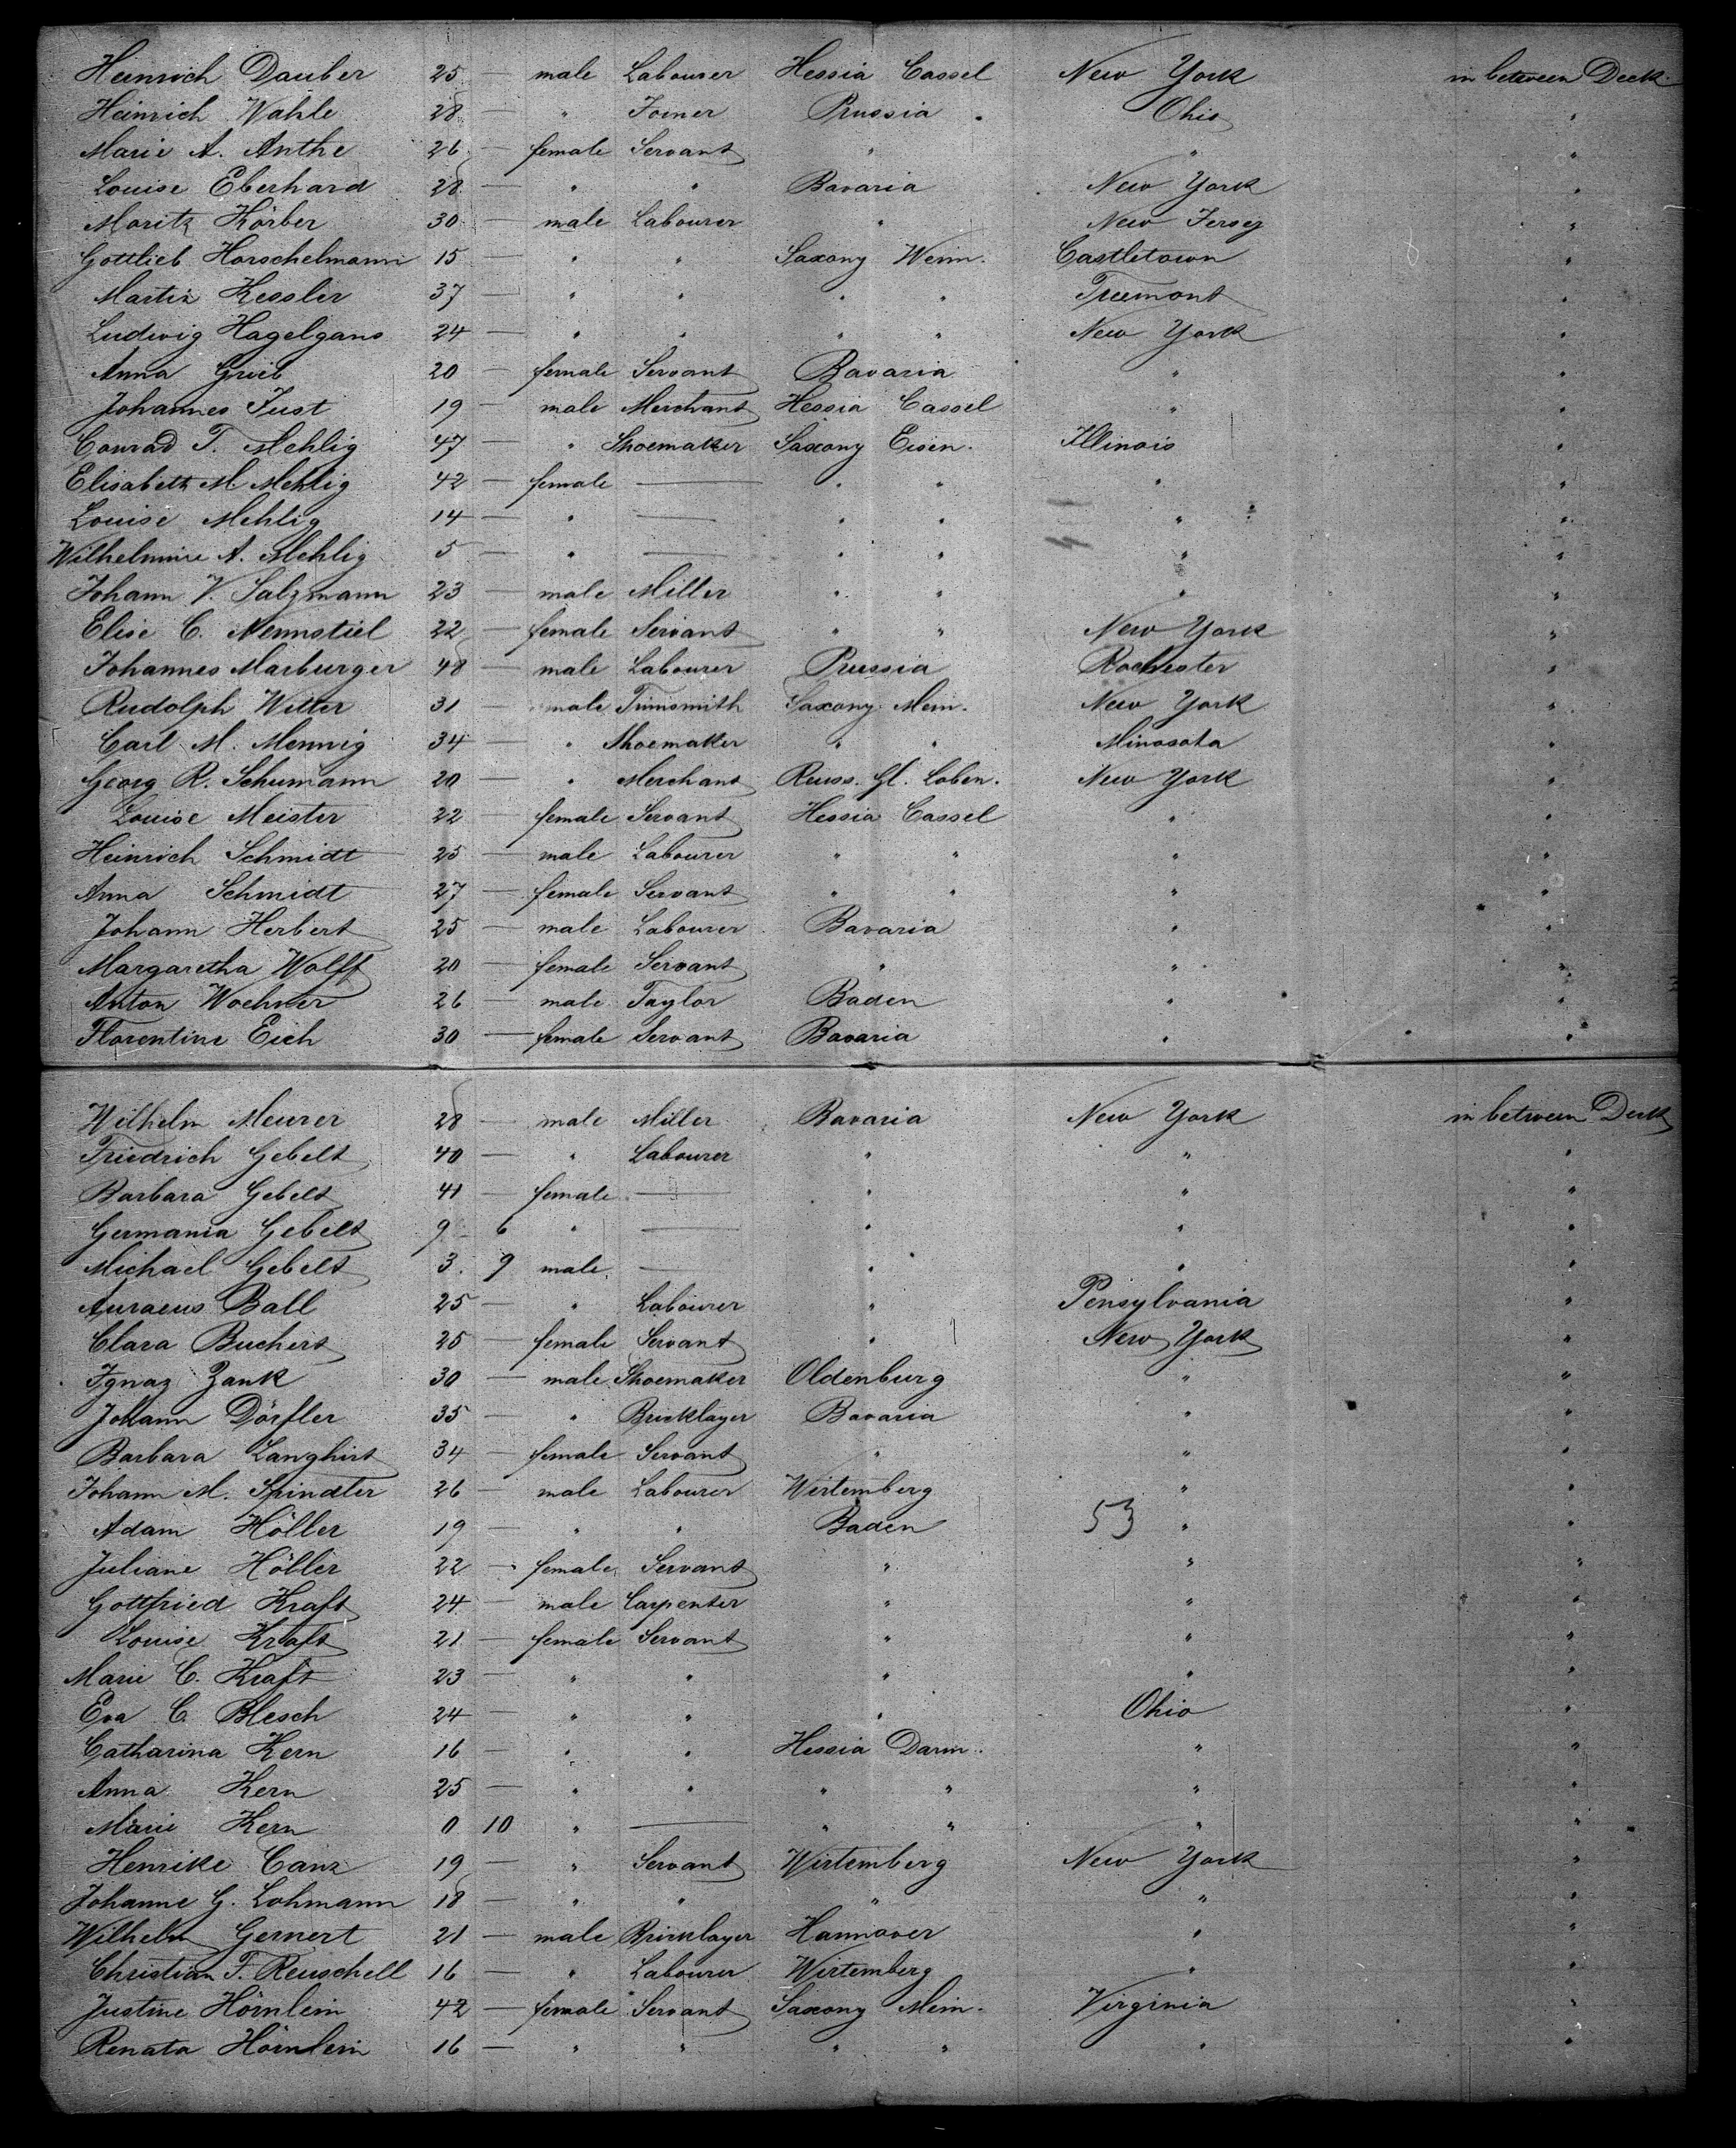 Heinrich Dauber 25 — male Labourer Hessia Cassel New York in between Deck.
Heinrich Wahle 28 — " Joiner Prussia Ohio "
Marie A. Anthe 26 — female Servant " " "
Louise Eberhard 28 — " " Bavaria New York "
Moritz Körber 30 — male Labourer " New Jersey "
Gottlieb Horschelmann 15 — " " Saxony Weim. Castletown "
Martin Kessler 37 — " " " " Treemont "
Ludwig Hagelgans 24 — " " " " New York "
Anna Grieb 20 — female Servant Bavaria " "
Johannes Just 19 — male Merchant Hessia Cassel " "
Conrad T. Mehlig 47 — " Shoemaker Saxony Eisen. Illinois "
Elisabeth M. Mehlig 42 — female — " " " "
Louise Mehlig 14 — " — " " " "
Wilhelmine A. Mehlig 5 — " — " " " "
Johann V. Salzmann 23 — male Miller " " " "
Elise C. Nennstiel 22 — female Servant " " New York "
Johannes Marburger 48 — male Labourer Prussia Rochester "
Rudolph Witter 31 — male Tinnsmith Saxony Mein. New York "
Carl M. Mennig 34 — " Shoemaker " " Minosota "
Georg R. Schumann 20 — " Merchant Reuss. Gl. Loben. New York "
Louise Meister 22 — female Servant Hessia Cassel " "
Heinrich Schmidt 25 — male Labourer " " " "
Anna Schmidt 27 — female Servant " " " "
Johann Herbert 25 — male Labourer Bavaria " "
Margaretha Wolff 20 — female Servant " " "
Anton Woehner 26 — male Taylor Baden " "
Florentine Eich 30 — female Servant Bavaria " "
Wilhelm Meurer 28 — male Miller Bavaria New York in between Deck
Friedrich Gebelt 40 — " Labourer " " "
Barbara Gebelt 41 — female — " " "
Germania Gebelt 9 6 " — " " "
Michael Gebelt 3. 9 male — " " "
Auraeus Ball 25 — " Labourer " Pensylvania "
Clara Buchert 25 — female Servant " New York "
Ignaz Zank 30 — male Shoemaker Oldenburg " "
Johann Dörfler 35 — " Bricklayer Bavaria " "
Barbara Langhirt 34 — female Servant " " "
Johann M. Spindler 26 — male Labourer Wirtemberg " "
Adam Höller 19 — " " Baden 53 " "
Juliane Höller 22 — female Servant " " "
Gottfried Kraft 24 — male Carpenter " " "
Louise Kraft 21 — female Servant " " "
Marie C. Kraft 23 — " " " " "
Eva C. Blesch 24 — " " " Ohio "
Catharina Kern 16 — " " Hessia Darm. " "
Anna Kern 25 — " " " " " "
Marie Kern 0 10 " — " " " "
Henrike Canz 19 — " Servant Wirtemberg New York "
Johanne G. Lohmann 18 — " " " " "
Wilhelm Gernert 21 — male Bricklayer Hannover " "
Christian F. Reuschell 16 — " Labourer Wirtemberg " "
Justine Hörnlein 42 — female Servant Saxony Mein. Virginia "
Renata Hörnlein 16 — " " " " " "